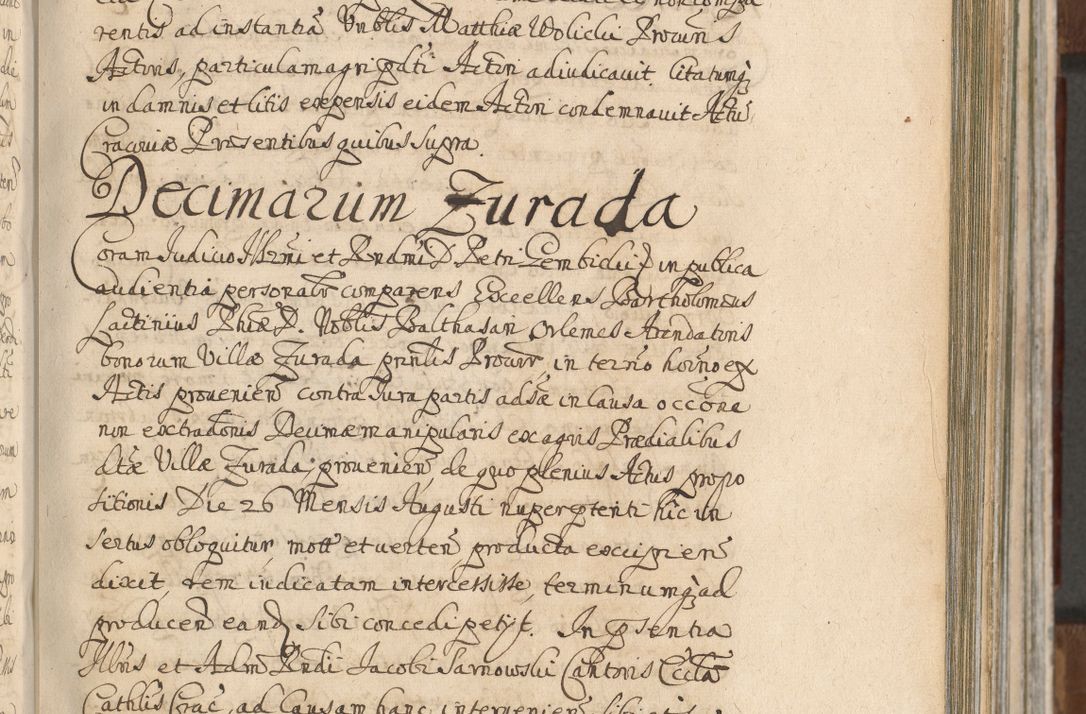 rentis ad instantiã Nñblis Matthiæ Wolicki Procuns
Actoris, particulam agri pdti Actori adiudicauit Citatumq
in damnis et litis expensis eidem Actori condemnauit Actũ
Cracouiæ Præsentibus quibus supra.
Decimarum Zurada
Coram Judicio Illrmi et Rndmi D Petri Gembickij D in publica
audientia personalr comparens Excellens Bartholomeus
Lactinius Phiæ D. Noblis Balthasari Orlemes Arendatoris
bonorum Villæ Zurada prntis Procurr, in termo hodrno ex
Actis prouenien contra Jura partis adsæ in causa occõne
non extradonis Decimæ manipularis ex agris Prædialibus
dtæ Villæ Zurada prouenien, de quo plenius Actus propo
sitionis Die 26 Mensis Augusti nuper ptenti hic in
sertus obloquitur, mott et uerten producta excipien
dixit, rem iudicatam intercessisse, terminumq ad
producen eand sibi concedi petijt. In psentia
Illris et Adm Rndi Jacobi Tarnowski Cantoris Ecclæ
Cathlis Crac, ad Causam hanc interuenien